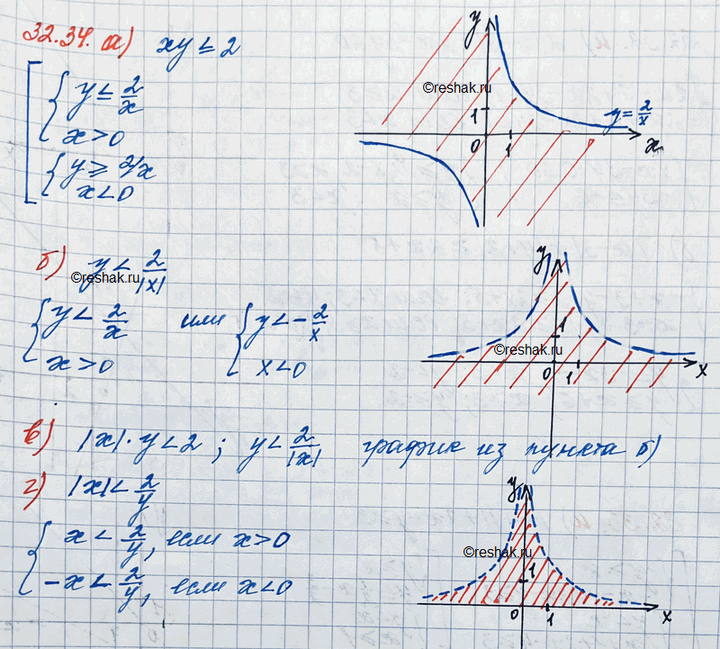 32.34. а) xy ≤ 2
y ≤ 2/x
x > 0
y ≥ 2/x
x < 0
y
©reshak.ru
1
y = 2/x
0 1 x
б) y < 2/|x|
©reshak.ru
y < 2/x или y < - 2/x
x > 0 x < 0
y
1
©reshak.ru
0 1 x
в) |x| · y < 2 ; y < 2/|x| график из пункта б)
г) |x| < 2/y
x < 2/y, если x > 0
-x < 2/y, если x < 0
y
©reshak.ru
1
0 1 x